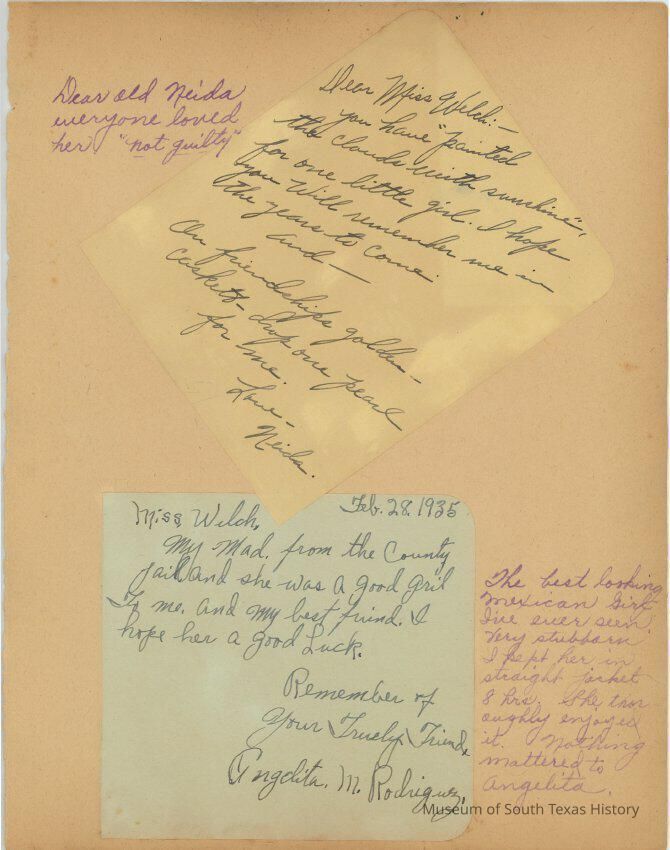 Dear old Neida
everyone loved
her. "not guilty"
Dear Miss Welch:—
you have "painted
the clouds with sunshine",
for one little girl. I hope
you will remember me in
the years to come.
and—
On friendships golden—
caskets— drop one pearl
for me.
Love—
Neida.
Feb. 28. 1935
Miss, Welch,
My Mad. from the County
Jail and she was a good gril
To me. and My best friend. I
hope her a good Luck.
Remember of
Your Truely Friend,
Angelita. M. Rodriguez.
The best looking
Mexican Girl
I've ever seen.
Very stubborn
I kept her in
straight jacket
8 hrs. She thor
oughly enjoyed
it. Nothing
mattered to
Angelita.
Museum of South Texas History